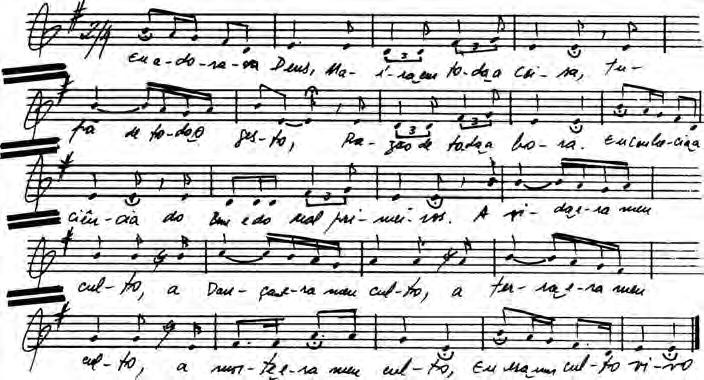 2/4
Eu a-do-ra-va Deus, Ma- í-ra em to-da a coi-sa, Tu-
pã de to-do o ges-to, Ra- zão de toda a ho-ra. Eu conhe-cia a
ciên-cia do Bem e do mal pri-mei-ros. A vi-da e-ra meu
cul-to, a Dan-ça e-ra meu cul-to, a ter-ra e-ra meu
cul-to, a mor-te e-ra meu cul-to, Eu era um cul-to vi-vo